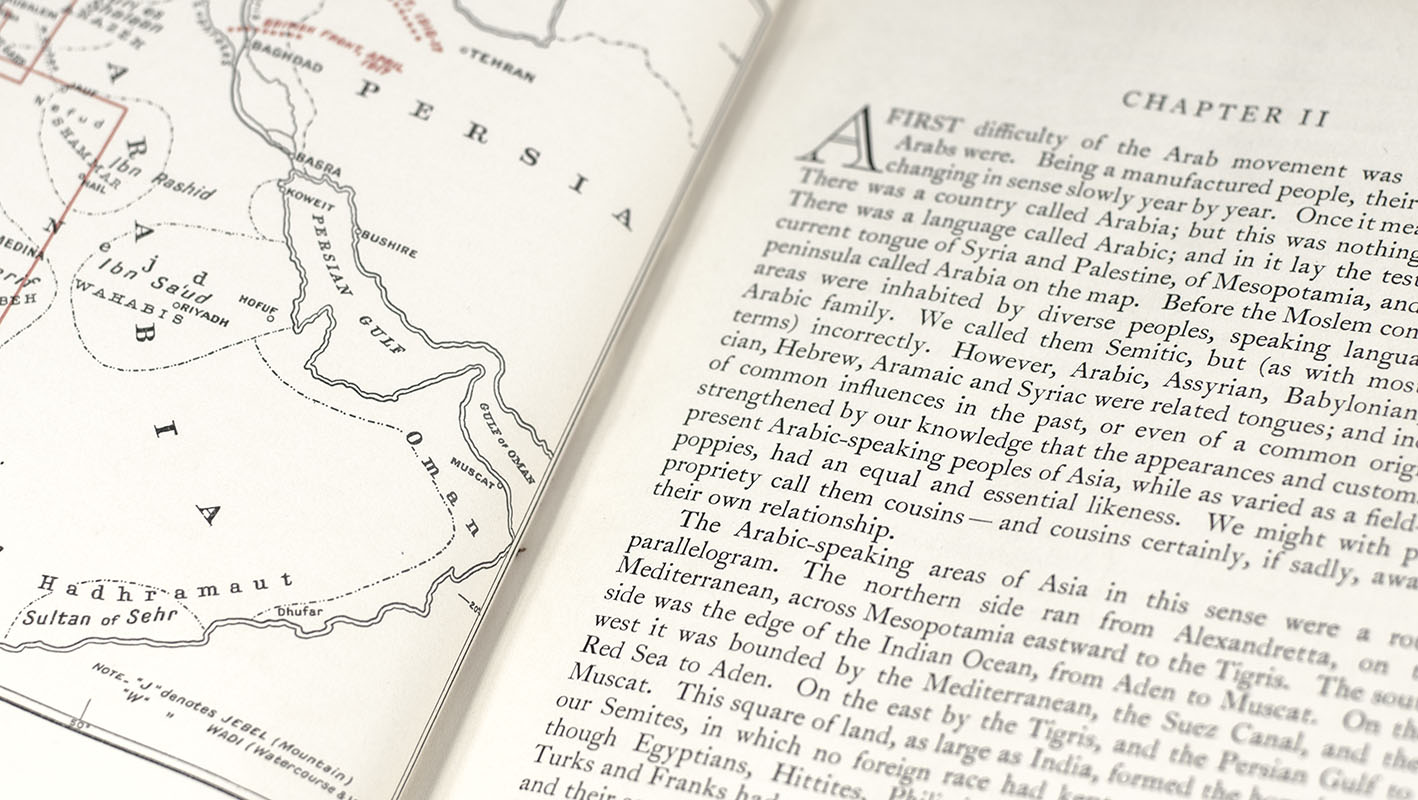 TEHRAN
BRITISH FRONT, APRIL
1917
BAGHDAD
PERSIA
ARABIA
JAUF
Nefud
SHAMMAR
HAIL
Ibn Rashid
BASRA
KOWEIT
PERSIAN GULF
BUSHIRE
MEDINA
Nejd
Ibn Sa'ud
WAHABIS
RIYADH
HOFUF
GULF OF OMAN
MUSCAT
Oman
Hadhramaut
Sultan of Sehr
Dhufar
20°
50°
NOTE. "J" denotes JEBEL (Mountain)
"W" " WADI (Watercourse &
CHAPTER II
A FIRST difficulty of the Arab movement was
Arabs were. Being a manufactured people, their
changing in sense slowly year by year. Once it
There was a country called Arabia; but this was nothing
There was a language called Arabic; and in it lay the
current tongue of Syria and Palestine, of Mesopotamia, and
peninsula called Arabia on the map. Before the Moslem
areas were inhabited by diverse peoples, speaking
Arabic family. We called them Semitic, but (as with
terms) incorrectly. However, Arabic, Assyrian, Babylonian
cian, Hebrew, Aramaic and Syriac were related tongues; and
of common influences in the past, or even of a common
strengthened by our knowledge that the appearances and
present Arabic-speaking peoples of Asia, while as varied as a field
poppies, had an equal and essential likeness. We might with
propriety call them cousins — and cousins certainly, if sadly,
their own relationship.
The Arabic-speaking areas of Asia in this sense were a
parallelogram. The northern side ran from Alexandretta, on
Mediterranean, across Mesopotamia eastward to the Tigris. The
side was the edge of the Indian Ocean, from Aden to Muscat. On
west it was bounded by the Mediterranean, the Suez Canal, and the
Red Sea to Aden. On the east by the Tigris, and the Persian Gulf to
Muscat. This square of land, as large as India, formed the
our Semites, in which no foreign race had
though Egyptians, Hittites,
Turks and Franks had
and their